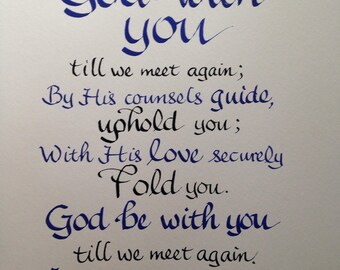 God with
you
till we meet again;
By His counsels guide,
uphold you;
With His love securely
Fold you.
God be with you
till we meet again.